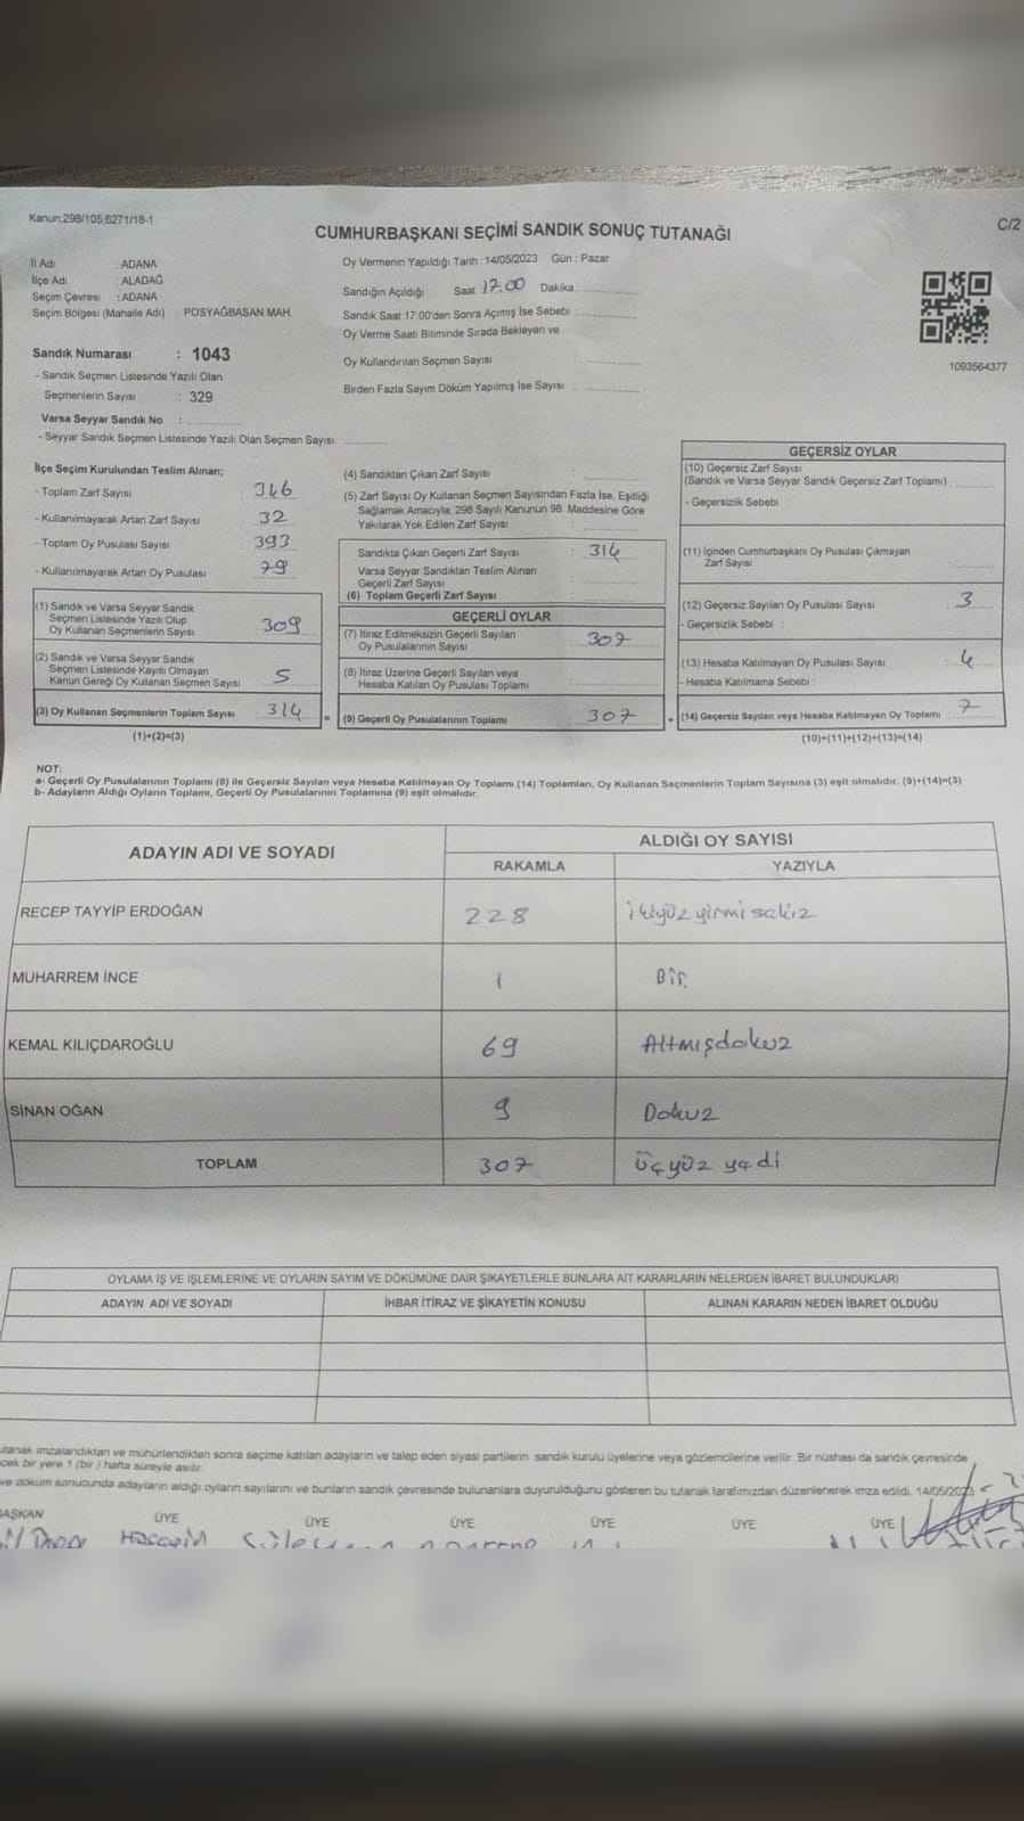 Kanun:298/105,6271/18-1
C/2
CUMHURBAŞKANI SEÇİMİ SANDIK SONUÇ TUTANAĞI
İl Adı : ADANA
İlçe Adı : ALADAĞ
Seçim Çevresi : ADANA
Seçim Bölgesi (Mahalle Adı) POSYAĞBASAN MAH.
Oy Vermenin Yapıldığı Tarih : 14/05/2023 Gün : Pazar
Sandığın Açıldığı Saat 17.00 Dakika
Sandık Saat 17:00'den Sonra Açılmış İse Sebebi
Oy Verme Saati Bitiminde Sırada Bekleyen ve
Oy Kullandırılan Seçmen Sayısı
Birden Fazla Sayım Döküm Yapılmış İse Sayısı
1093564377
Sandık Numarası : 1043
- Sandık Seçmen Listesinde Yazılı Olan
Seçmenlerin Sayısı : 329
Varsa Seyyar Sandık No :
- Seyyar Sandık Seçmen Listesinde Yazılı Olan Seçmen Sayısı
İlçe Seçim Kurulundan Teslim Alınan;
- Toplam Zarf Sayısı 346
- Kullanılmayarak Artan Zarf Sayısı 32
- Toplam Oy Pusulası Sayısı 393
- Kullanılmayarak Artan Oy Pusulası 79
(1) Sandık ve Varsa Seyyar Sandık
Seçmen Listesinde Yazılı Olup
Oy Kullanan Seçmenlerin Sayısı 309
(2) Sandık ve Varsa Seyyar Sandık
Seçmen Listesinde Kayıtlı Olmayan
Kanun Gereği Oy Kullanan Seçmen Sayısı 5
(3) Oy Kullanan Seçmenlerin Toplam Sayısı 314
(1)+(2)=(3)
(4) Sandıktan Çıkan Zarf Sayısı
(5) Zarf Sayısı Oy Kullanan Seçmen Sayısından Fazla İse, Eşitliği
Sağlamak Amacıyla, 298 Sayılı Kanunun 98. Maddesine Göre
Yakılarak Yok Edilen Zarf Sayısı
Sandıkta Çıkan Geçerli Zarf Sayısı : 314
Varsa Seyyar Sandıktan Teslim Alınan
Geçerli Zarf Sayısı
(6) Toplam Geçerli Zarf Sayısı
GEÇERLİ OYLAR
(7) İtiraz Edilmeksizin Geçerli Sayılan
Oy Pusulalarının Sayısı 307
(8) İtiraz Üzerine Geçerli Sayılan veya
Hesaba Katılan Oy Pusulası Toplamı
= (9) Geçerli Oy Pusulalarının Toplamı 307
GEÇERSİZ OYLAR
(10) Geçersiz Zarf Sayısı
(Sandık ve Varsa Seyyar Sandık Geçersiz Zarf Toplamı)
- Geçersizlik Sebebi
(11) İçinden Cumhurbaşkanı Oy Pusulası Çıkmayan
Zarf Sayısı
(12) Geçersiz Sayılan Oy Pusulası Sayısı 3
- Geçersizlik Sebebi :
(13) Hesaba Katılmayan Oy Pusulası Sayısı 4
- Hesaba Katılmama Sebebi
+ (14) Geçersiz Sayılan veya Hesaba Katılmayan Oy Toplamı 7
(10)+(11)+(12)+(13)=(14)
NOT:
a- Geçerli Oy Pusulalarının Toplamı (9) ile Geçersiz Sayılan veya Hesaba Katılmayan Oy Toplamı (14) Toplamları, Oy Kullanan Seçmenlerin Toplam Sayısına (3) eşit olmalıdır. (9)+(14)=(3)
b- Adayların Aldığı Oyların Toplamı, Geçerli Oy Pusulalarının Toplamına (9) eşit olmalıdır.
ADAYIN ADI VE SOYADI ALDIĞI OY SAYISI
RAKAMLA YAZIYLA
RECEP TAYYİP ERDOĞAN 228 ikiyüz yirmi sekiz
MUHARREM İNCE 1 Bir
KEMAL KILIÇDAROĞLU 69 Altmışdokuz
SİNAN OĞAN 9 Dokuz
TOPLAM 307 üçyüz yedi
OYLAMA İŞ VE İŞLEMLERİNE VE OYLARIN SAYIM VE DÖKÜMÜNE DAİR ŞİKAYETLERLE BUNLARA AİT KARARLARIN NELERDEN İBARET BULUNDUKLARI
ADAYIN ADI VE SOYADI İHBAR İTİRAZ VE ŞİKAYETİN KONUSU ALINAN KARARIN NEDEN İBARET OLDUĞU
imzalandıktan ve mühürlendikten sonra seçime katılan adayların ve talep eden siyasi partilerin sandık kurulu üyelerine veya gözlemcilerine verilir. Bir nüshası da sandık çevresinde
bir yere 1 (bir) hafta süreyle asılır.
ve döküm sonucunda adayların aldığı oyların sayılarını ve bunların sandık çevresinde bulunanlara duyurulduğunu gösteren bu tutanak tarafımızdan düzenlenerek imza edildi. 14/05/2023
BAŞKAN ÜYE ÜYE ÜYE ÜYE ÜYE ÜYE